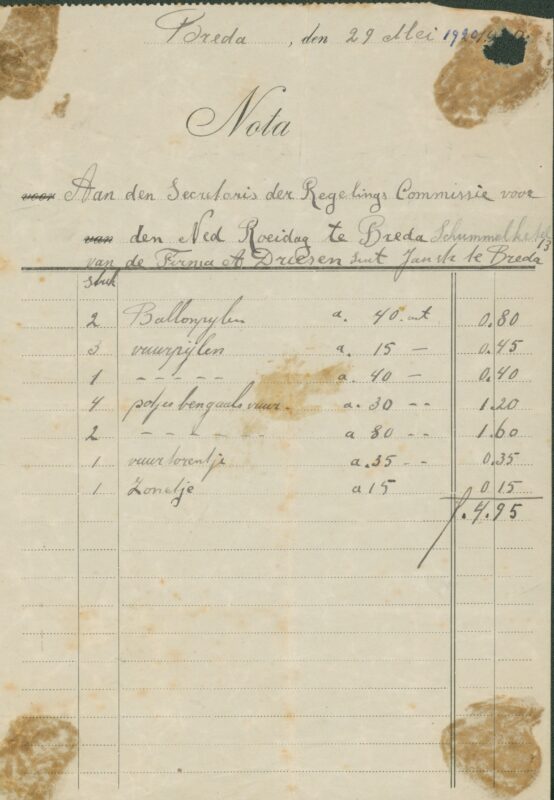 Breda, den 29 Mei 1920
Nota
voor Aan den Secretaris der Regelings Commissie voor
van den Ned Roeidag te Breda
van de Firma A Driesen Sint Janstr te Breda
stuk
2 Ballonpylen a. 40 cnt 0.80
3 vuurpijlen a. 15 — 0.45
1 - - - - - a. 40 — 0.40
4 potjes bengaals vuur. a. 30 -- 1.20
2 - - - - - a 80 -- 1.60
1 vuur torentje a. 35 -- 0.35
1 Zonetje a 15 0 15
f. 4.95